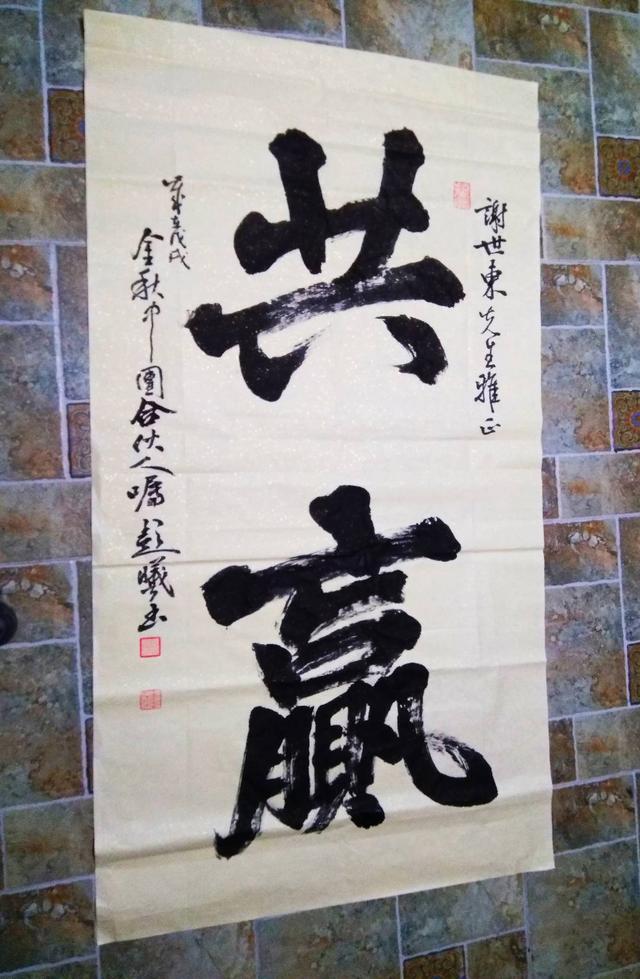 謝世東先生雅正
共
贏
歲在戊戌
金秋中國合伙人囑彭曦书